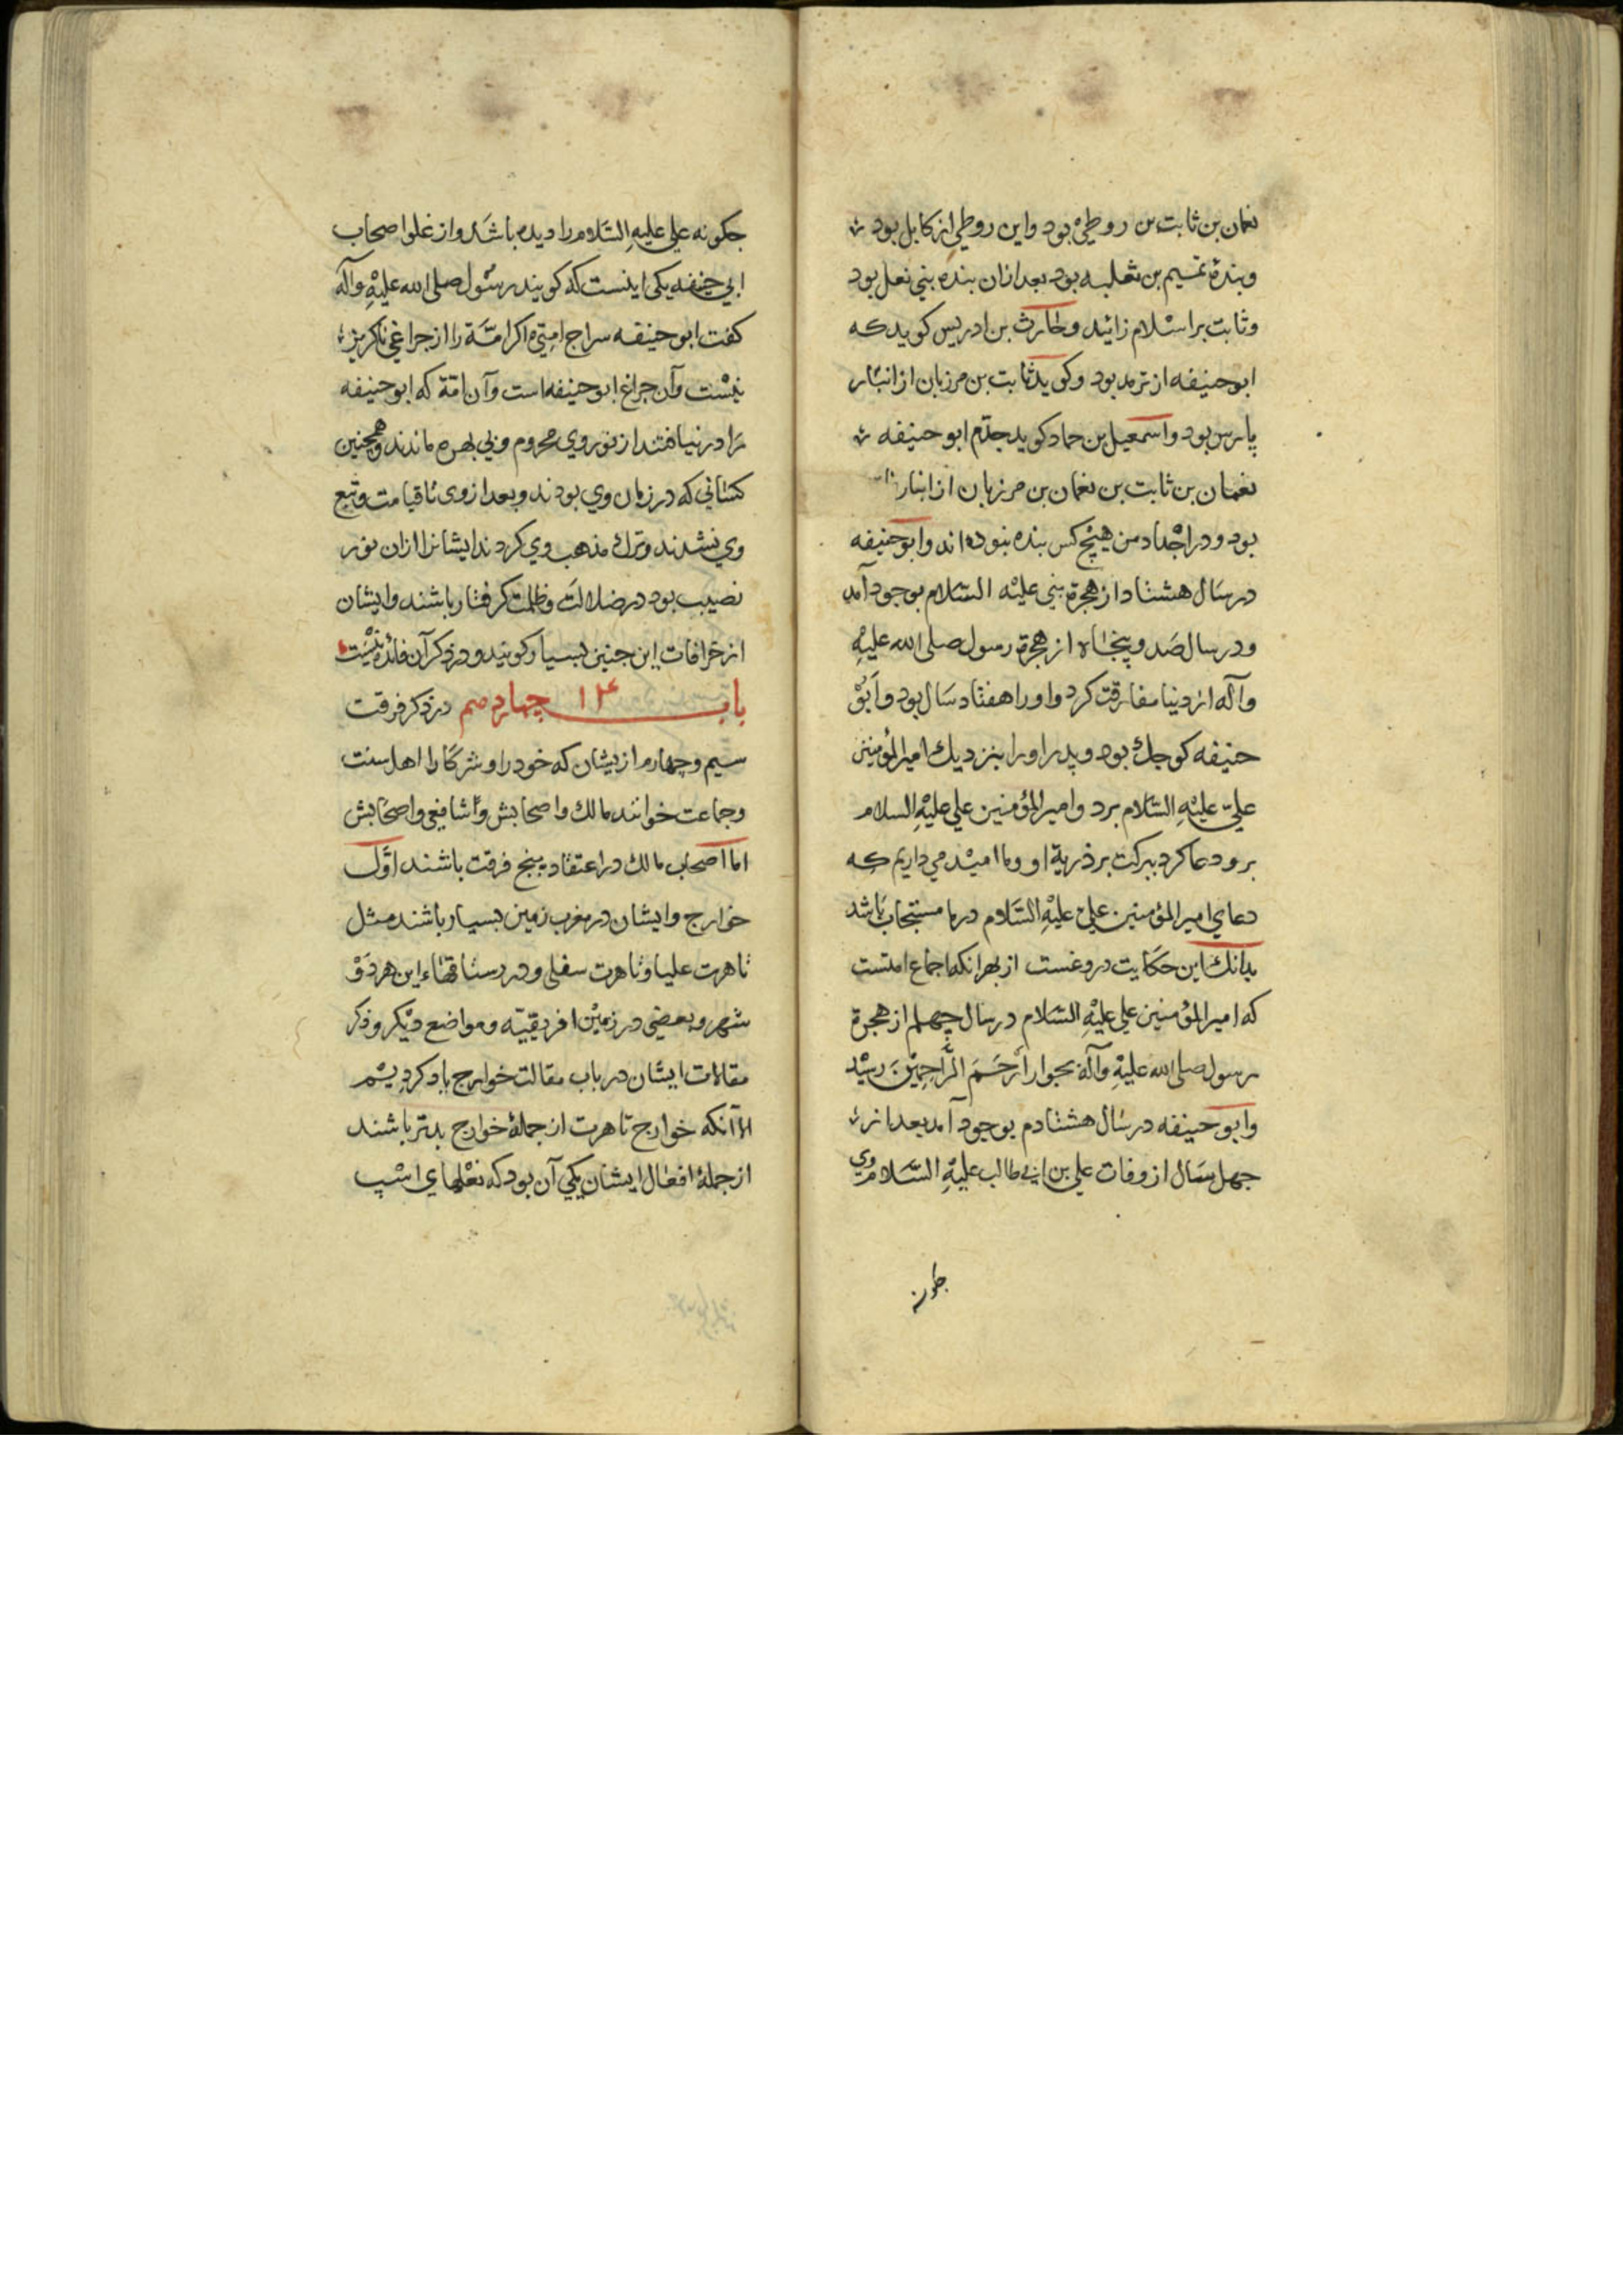 نعمان بن ثابت بن روطی بود واین روطی از کابل بود
وبندهٔ تمیم بن ثعلبه بود بعد ازان بنده بنی نعل بود
وثابت بر اسلام زائید وحارث بن ادریس کوید که
ابوحنیفه از ترمد بود وکوید ثابت بن مرزبان از انبار
پارس بود واسمعیل بن حماد کوید جدّم ابوحنیفه
نعمان بن ثابت بن نعمان بن مرزبان از انبار
بود ودر اجداد من هیچ کس بنده نبوده اند وابوحنیفه
در سال هشتاد از هجرة نبی علیه السّلام بوجود آمد
ودر سال صد وپنجاه از هجرة رسول صلی الله علیهِ
وآله از دنیا مفارقت کرد واورا هفتاد سال بود وابو
حنیفه کوجك بود وپدر اورا بنزدیك امیر المؤمنین
علیّ علیهِ السّلام برد وامیر المؤمنین علی علیهِ السلام
برو دعا کرد ببرکت بر ذریة او وما امید می داریم که
دعای امیر المؤمنین علی علیهِ السّلام در ما مستجاب باشد
بدانك این حکایت دروغست از بهر انکه اجماع امتست
که امیر المؤمنین علی علیهِ السّلام در سال چهلم از هجرة
رسول صلی الله علیهِ وآله بجوار أَرْحَمَ الرَّاحِمِیْنَ رسید
وابوحنیفه در سال هشتادم بوجود آمد بعد از
جهل سال از وفات علی بن ابی طالب علیهِ السّلام وی
جکونه علی علیهِ السّلام را دیده باشد واز غلو اصحاب
ابی حنیفه یکی اینست که کویند رسول صلی الله علیهِ وآله
کفت ابوحنیفه سراج امتی اکر امّة را از جراغی ناکریز
نیست وآن جراغ ابوحنیفه است وآن امّة که ابوحنیفه
را در نیافتند از نور وی محروم وبی بهره ماندند وهمچنین
کسانی که در زمان وی بودند وبعد از وی تا قیامت وتبع
وی نشدند وترك مذهب وی کردند ایشانرا ازان نور
نصیب بود در ضلالت وظلمت کرفتار باشند وایشان
از خرافات این جنین بسیار کویند ودر ذکر آن فائده نیست
باب ۱۴ چهاردهم در ذکر فرقت
سیم وچهارم از یشان که خود را وشرکا را اهل سنت
وجماعت خوانند مالك واصحابش وشافعی واصحابش
اما اصحاب مالك در اعتقاد پنج فرقت باشند اوّل
خوارج وایشان در مغرب زمین بسیار باشند مثل
تاهرت علیا وتاهرت سفلی ودر رستاقهاء این هر دو
شهر وبعضی در زمین افریقیّه ومواضع دیکر وذکر
مقالات ایشان در باب مقالت خوارج یاد کردیم
الا آنکه خوارج تاهرت از جملهٔ خوارج بدتر باشند
از جملهٔ افعال ایشان یکی آن بود که نعلهای اسپ